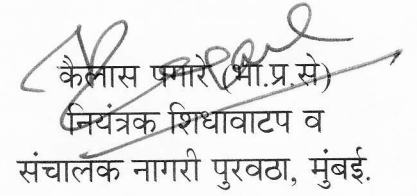 कैलास पगारे (भा.प्र.से)
नियंत्रक शिधावाटप व
संचालक नागरी पुरवठा, मुंबई.